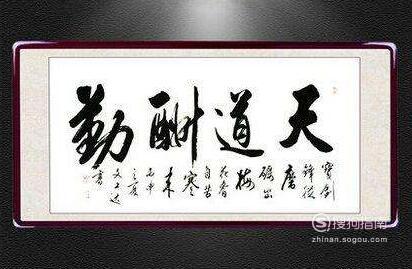 天道酬勤
寶劍
鋒從
磨
礪出
梅
花香
自苦
寒
来
丙申
之夏
書
搜狗指南
zhinan.sogou.com